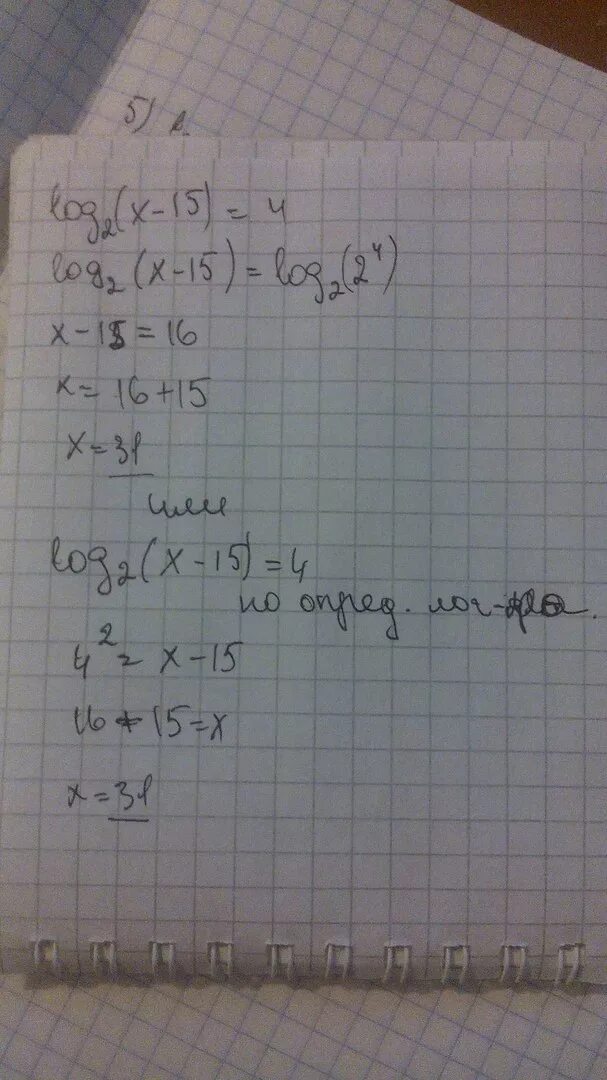 5)
log₂(x-15) = 4
log₂(x-15) = log₂(2⁴)
x-15 = 16
x = 16+15
x = 31
или
log₂(x-15) = 4
по опред. лог-
4² = x-15
16 + 15 = x
x = 31